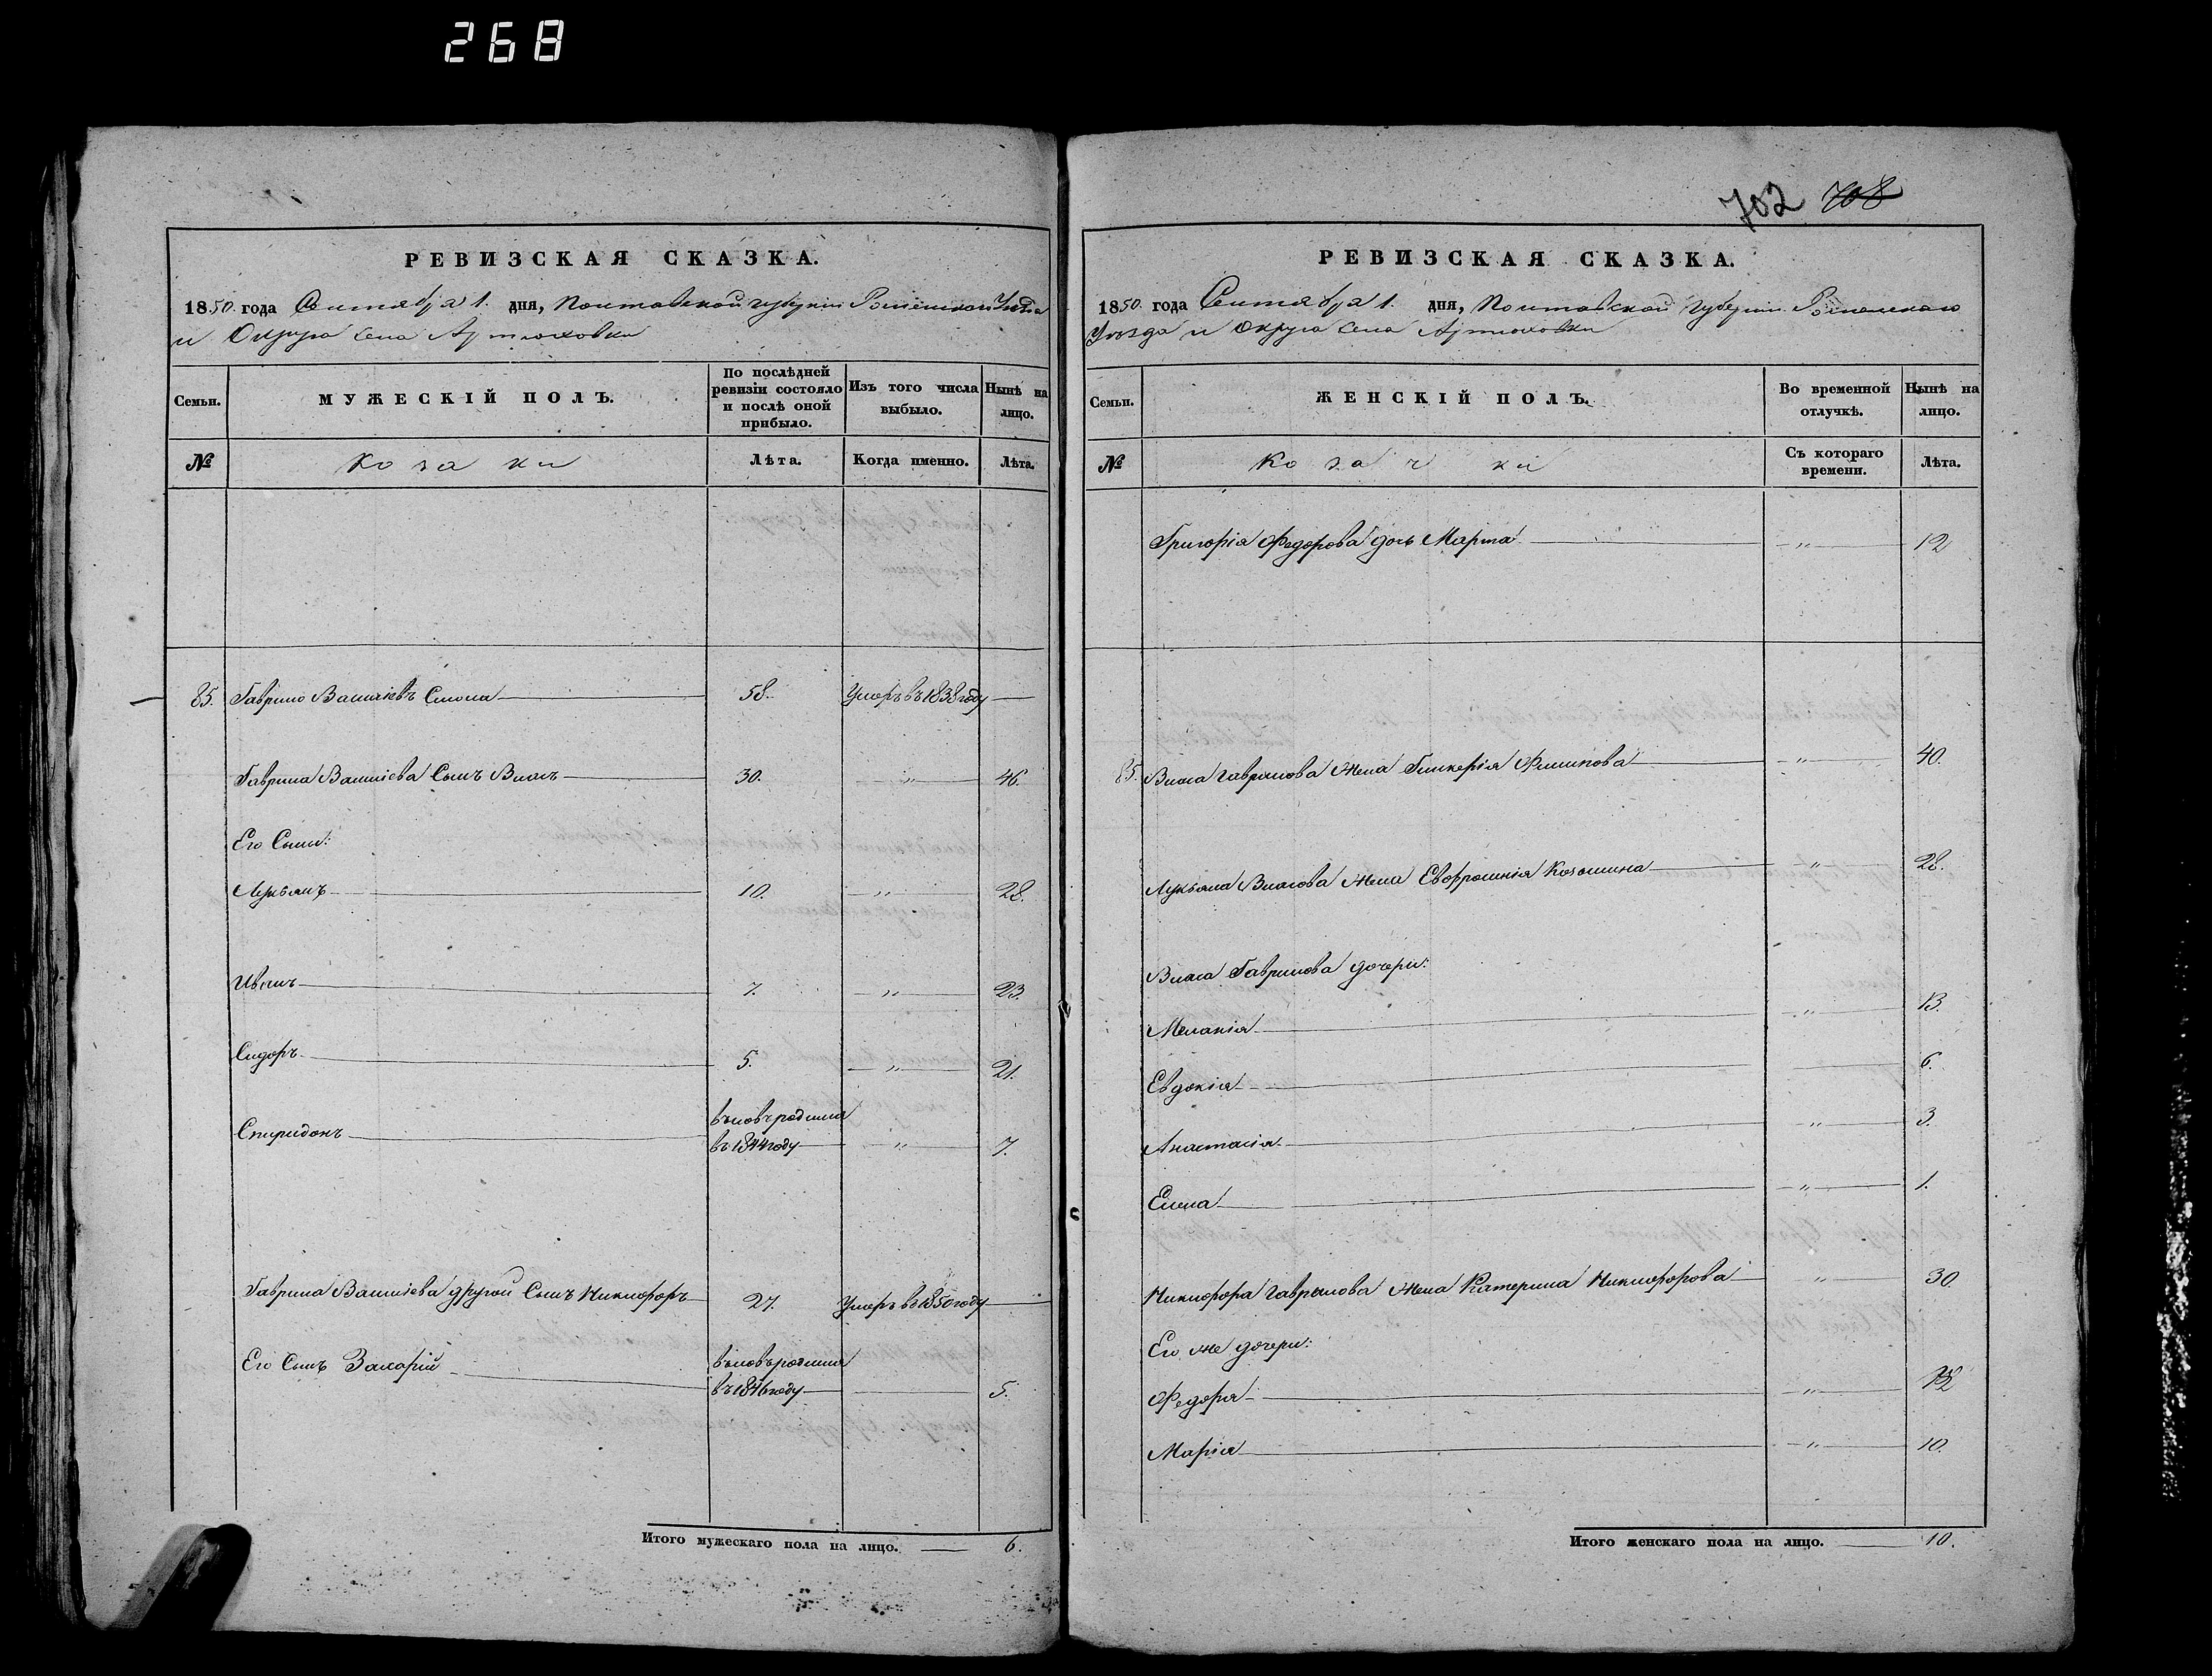 268
702 708
РЕВИЗСКАЯ СКАЗКА.
1850 года Сентября 1. дня, Полтавской губерніи Роменскаго Уезда
и Округа села Артюховки
Семьи.
МУЖЕСКІЙ ПОЛЪ.
По послѣдней ревизіи состояло и послѣ оной прибыло.
Изъ того числа выбыло.
Нынѣ на лицо.
№
Козаки
Лѣта.
Когда именно.
Лѣта.
85. Гаврило Василіевъ 58. Умеръ въ 1838 году
Гаврила Василіева Сынъ Власъ 30. " 46.
Его Сыны:
Лукьянъ 10. " 28.
Иванъ 7. " 23.
Сидоръ 5. " 21.
Спиридонъ вновь родился
въ 1844 году " 7.
Гаврила Василіева другой Сынъ Никифоръ 27. Умеръ въ 1850 году
Его Сынъ Захарій вновь родился
въ 1846 году 5.
Итого мужескаго пола на лицо. 6.
РЕВИЗСКАЯ СКАЗКА.
1850. года Сентября 1. дня, Полтавской Губерніи Роменскаго
Уѣзда и Округа села Артюховки
Семьи.
ЖЕНСКІЙ ПОЛЪ.
Во временной отлучкѣ.
Нынѣ на лицо.
№
Козачки
Съ котораго времени.
Лѣта.
Григорія Федорова дочь Марфа " 12
85. Власа Гаврилова жена Гликерія Филипова " 40.
Лукьяна Власова жена Евфросинія " 28.
Власа Гаврилова дочери:
Меланія " 13.
Евдокія 6.
Анастасія " 3.
Елена " 1.
Никифора Гаврилова жена Катерина Никифорова " 30
Его же дочери:
Федора " 12
Марія " 10.
Итого женскаго пола на лицо. 10.